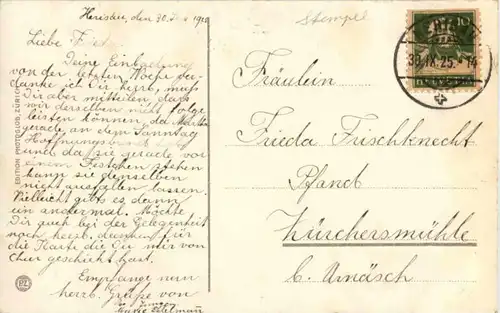 Herisau, den 30.
Liebe
Deine Einladung
von der letzten Woche ver-
danke ich Dir herzl. muss
Dir aber mitteilen, dass
wir derselben nicht Folge
leisten können, da
gerade an dem Sonntag
Hoffnungsbund
und da sie gerade vor
einem Festchen stehen
kann sie denselben
nicht ausfallen lassen.
Vielleicht gibt es dann
ein andermal. Möchte
Dir auch bei der Gelegenheit
noch herzl. danken für
die Karte die Du mir von
Chur geschickt hast.
Empfange nun
herzl. Grüsse von
Stempel
10
30.IX.25.-14
HELVETIA
Fräulein
Frieda Frischknecht
Pfand
Zürchersmühle
b. Urnäsch
EDITION PHOTOGLOB, ZÜRICH
PZ